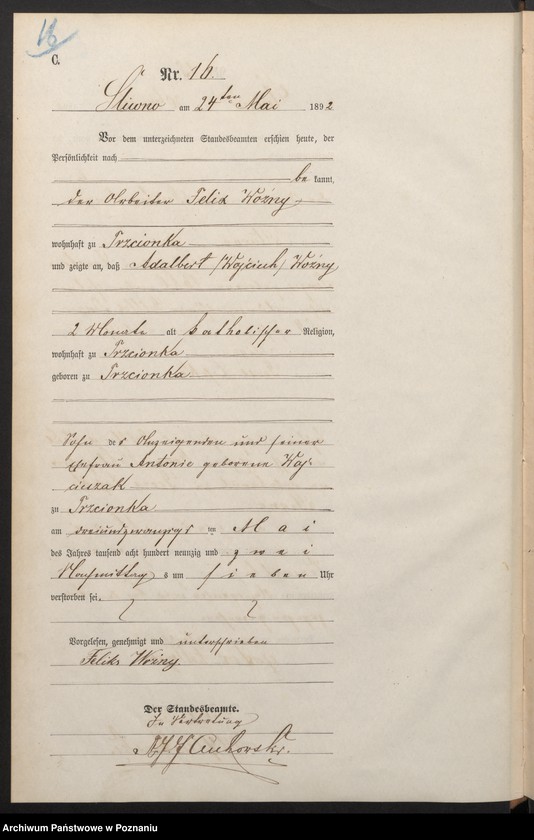 16
C.
Nr. 16.
Sliwno am 24ten Mai 1892
Vor dem unterzeichneten Standesbeamten erschien heute, der
Persönlichkeit nach
be kannt,
der Arbeiter Felix Woźny
wohnhaft zu Trzcionka
und zeigte an, daß Adalbert /Wojciech/ Woźny
2 Monate alt katholischer Religion,
wohnhaft zu Trzcionka
geboren zu Trzcionka
Sohn des Anzeigenden und seiner
Ehefrau Antonie geborene Woj-
cieszak
zu Trzcionka
am dreiundzwanzigs ten Mai
des Jahres tausend acht hundert neunzig und zwei
Nachmittag s um sieben Uhr
verstorben sei.
Vorgelesen, genehmigt und unterschrieben
Feliks Woźny
Der Standesbeamte.
In Vertretung
Archiwum Państwowe w Poznaniu